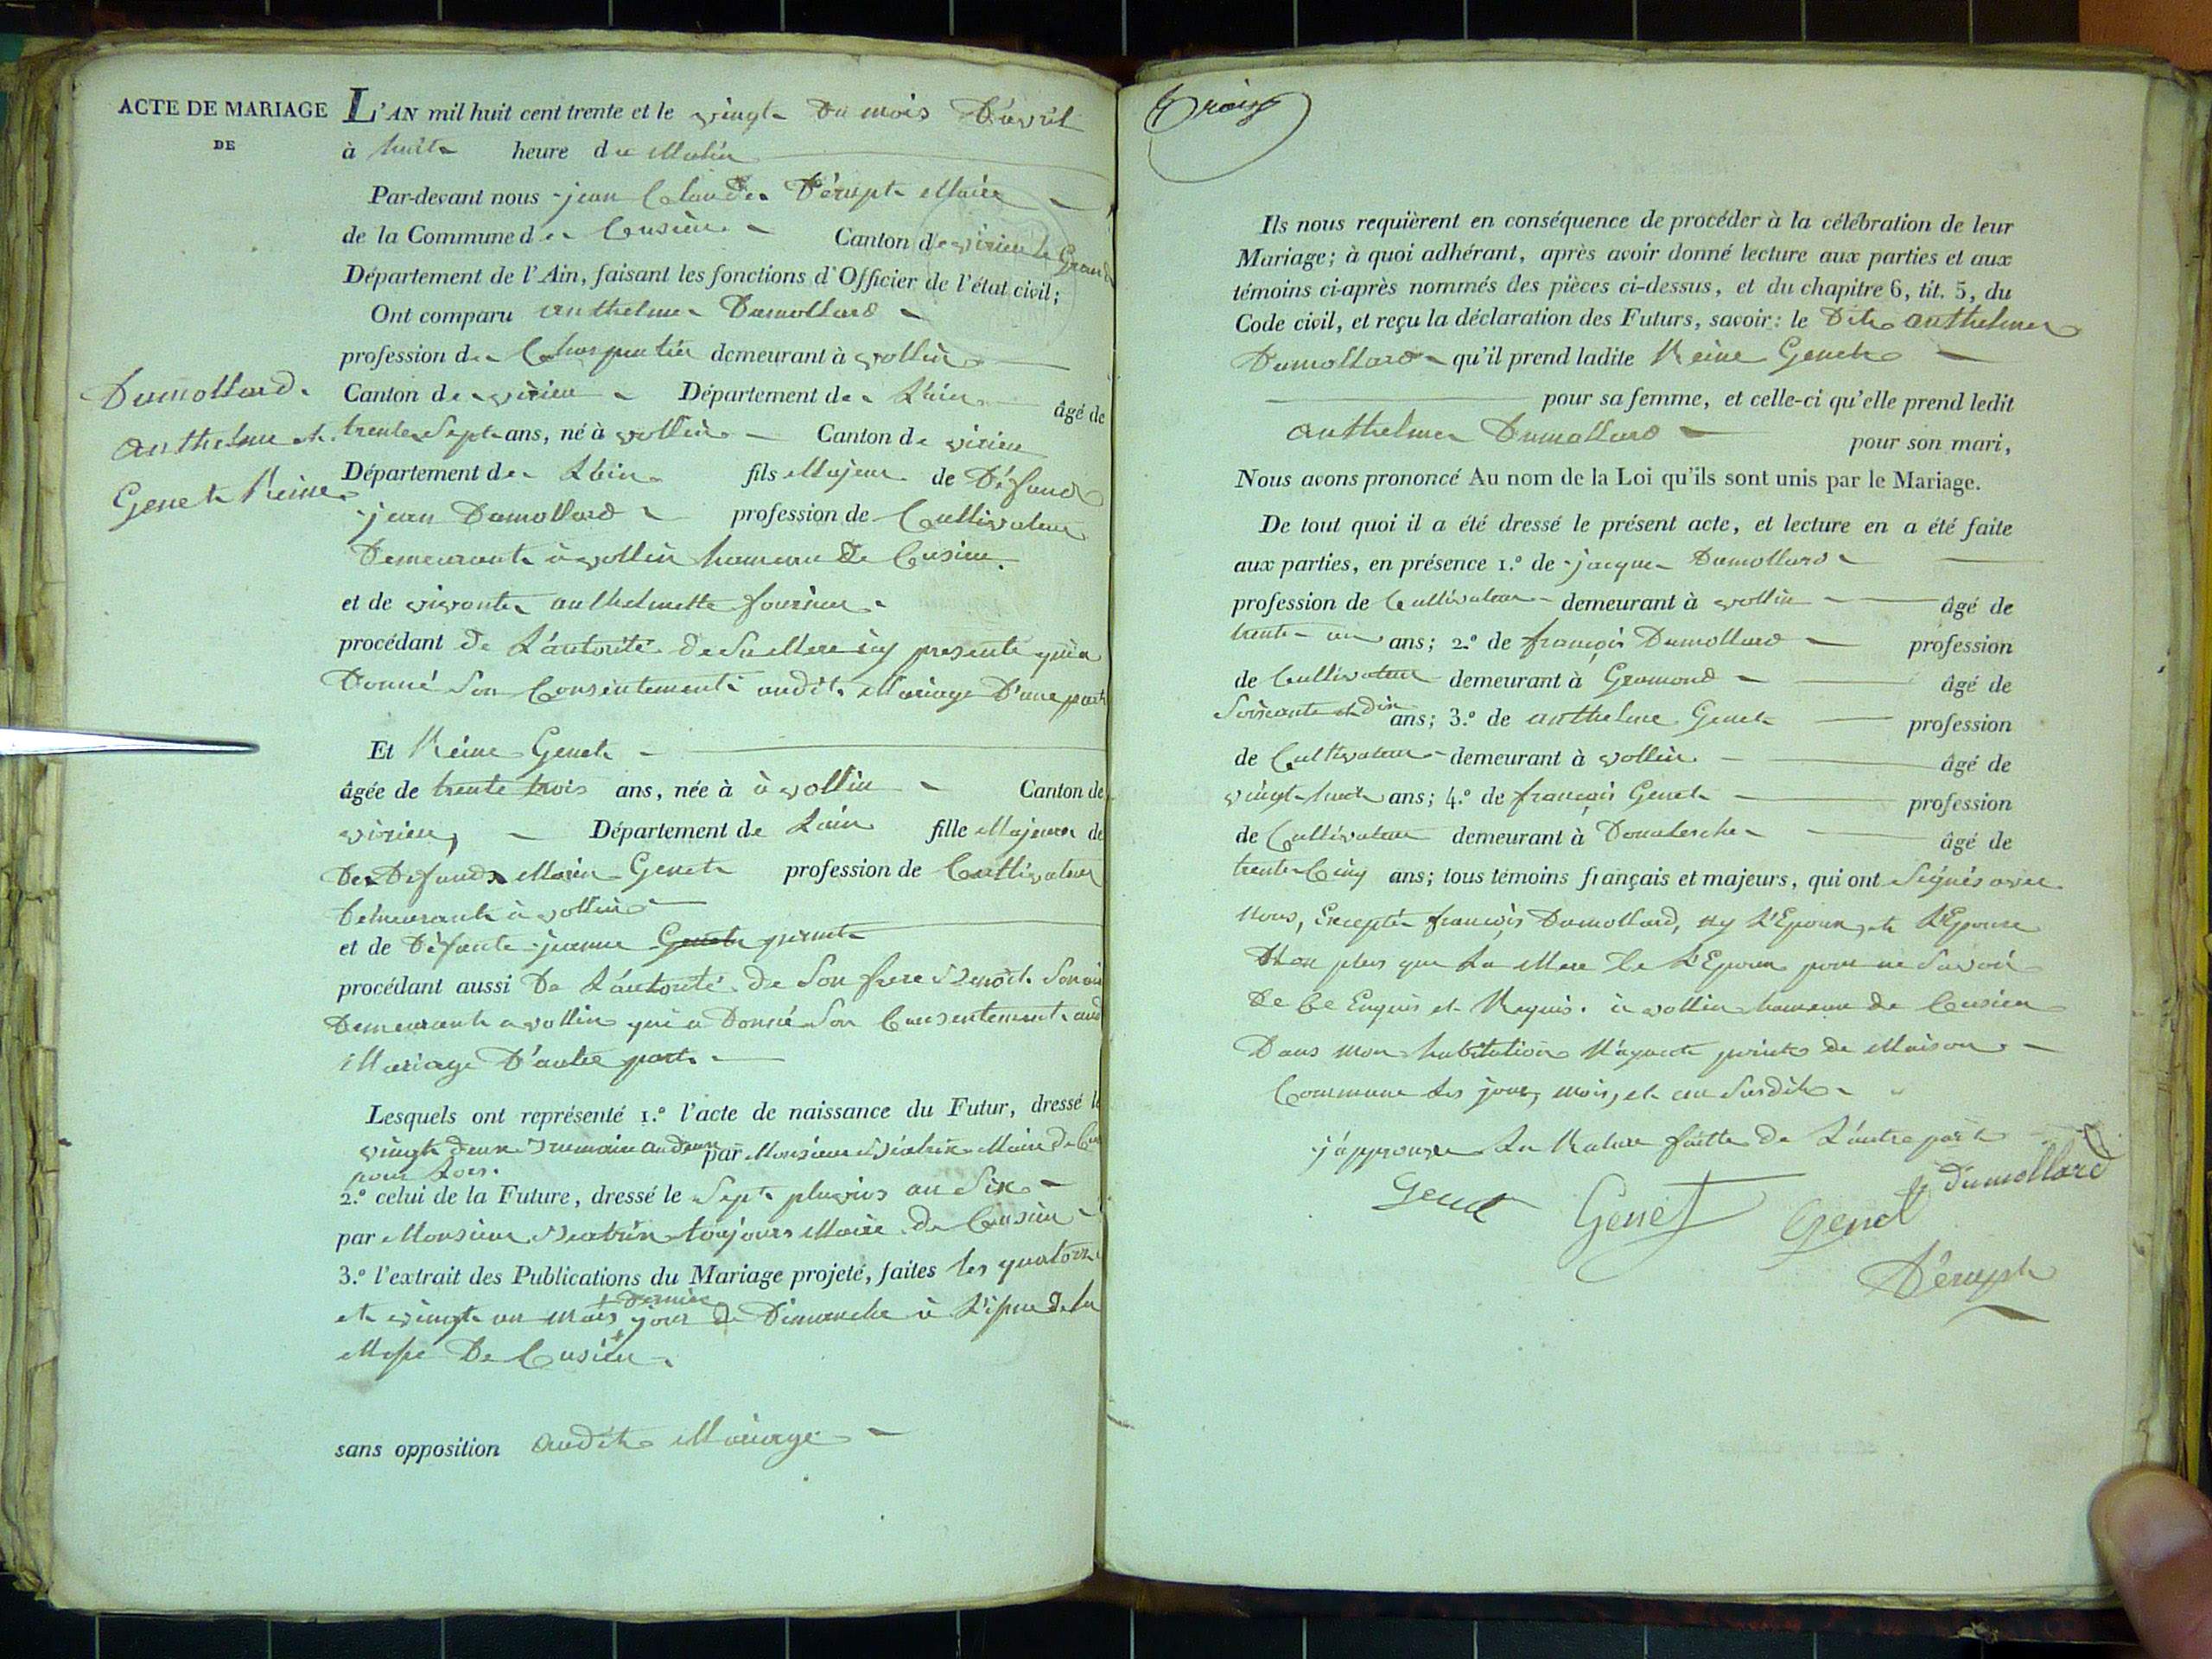 ACTE DE MARIAGE
DE
Dumollard
anthelme et
Genet Reine
L'AN mil huit cent trente et le vingt du mois D'avril
à huit heure du Matin
Par-devant nous jean Claude Dérupt Maire
de la Commune de Cusieu Canton de virieu le Grand
Département de l'Ain, faisant les fonctions d'Officier de l'état civil;
Ont comparu anthelme Dumollard
profession de Charpentier demeurant à vollien
Canton de virieu Département de L'ain âgé de
trente Sept ans, né à vollien Canton de virieu
Département de L'ain fils Majeur de Défund
jean Dumollard profession de Cultivateur
Demeurant à vollien hameau De Cusieu.
et de vivante anthelmette fournier
procédant de L'autorité de Sa Mere icy presente qui a
Donné Son Consentement audit Mariage D'une part
Et Reine Genet
âgée de trente trois ans, née à à vollien Canton de
virieu Département de L'ain fille Majeure de
De Défund Genet profession de Cultivateur
Demeurant à vollien
et de Défunte jeanne Genet
procédant aussi De L'autorité de Son frere Benoît
Demeurant a vollien qui a Donné Son Consentement aud
Mariage D'autre part.
Lesquels ont représenté 1.º l'acte de naissance du Futur, dressé le
vingt deux par Monsieur Maire de
pour Lors.
2.º celui de la Future, dressé le Sept pluvios an Six
par Monsieur toujours Maire de Cusieu
3.º l'extrait des Publications du Mariage projeté, faites les quatorze
et vingt un mars + Dernier jour de Dimanche à L'issue de la
Messe De Cusieu
sans opposition audit Mariage
Trois
Ils nous requièrent en conséquence de procéder à la célébration de leur
Mariage; à quoi adhérant, après avoir donné lecture aux parties et aux
témoins ci-après nommés des pièces ci-dessus, et du chapitre 6, tit. 5, du
Code civil, et reçu la déclaration des Futurs, savoir: le Dit anthelme
Dumollard qu'il prend ladite Reine Genet
pour sa femme, et celle-ci qu'elle prend ledit
anthelme Dumollard pour son mari,
Nous avons prononcé Au nom de la Loi qu'ils sont unis par le Mariage.
De tout quoi il a été dressé le présent acte, et lecture en a été faite
aux parties, en présence 1.º de jacque Dumollard
profession de Cultivateur demeurant à vollien âgé de
trente un ans; 2.º de françois Dumollard profession
de Cultivateur demeurant à Gramond âgé de
Soixante et dix ans; 3.º de anthelme Genet profession
de Cultivateur demeurant à vollien âgé de
vingt huit ans; 4.º de françois Genet profession
de Cultivateur demeurant à âgé de
trente Cinq ans; tous témoins français et majeurs, qui ont Signés avec
Nous, Excepté françois Dumollard, ny L'Epoux, et L'Epouse
Non plus que La Mere De L'Epoux pour ne Savoir
De Ce Enquis et Requis. à vollien hameau de Cusieu
Dans mon habitation N'ayant point de Maison
Commune Les jour, mois, et an Susdit
j'approuve La Rature faitte de L'autre part
Genet Genet Genet J Dumollard
Dérupt